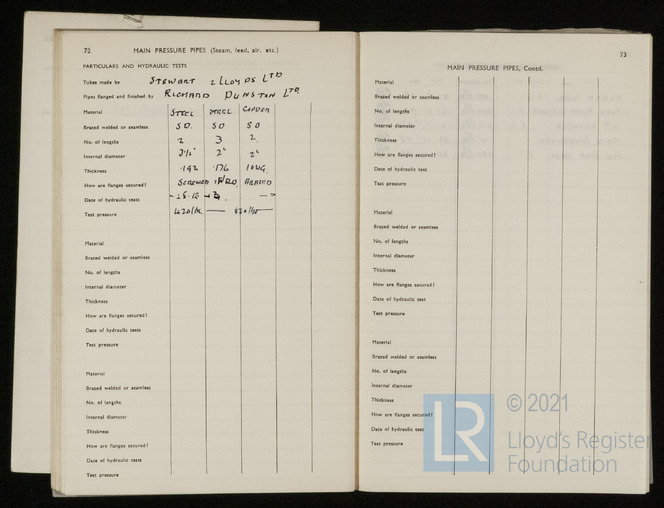 72 MAIN PRESSURE PIPES (Steam, feed, air, etc.)
PARTICULARS AND HYDRAULIC TESTS
Tubes made by STEWART & LLOYDS LTD
Pipes flanged and finished by RICHARD DUNSTON LTD.
Material STEEL STEEL COPPER
Brazed welded or seamless S.D. S D S D
No. of lengths 2 3 2
Internal diameter 3½" 2" 2"
Thickness .142 .176 10WG.
How are flanges secured? SCREWED BRAZED
Date of hydraulic tests
Test pressure
Material
Brazed welded or seamless
No. of lengths
Internal diameter
Thickness
How are flanges secured?
Date of hydraulic tests
Test pressure
Material
Brazed welded or seamless
No. of lengths
Internal diameter
Thickness
How are flanges secured?
Date of hydraulic tests
Test pressure
73
MAIN PRESSURE PIPES, Contd.
Material
Brazed welded or seamless
No. of lengths
Internal diameter
Thickness
How are flanges secured?
Date of hydraulic test
Test pressure
Material
Brazed welded or seamless
No. of lengths
Internal diameter
Thickness
How are flanges secured?
Date of hydraulic test
Test pressure
Material
Brazed welded or seamless
No. of lengths
Internal diameter
Thickness
How are flanges secured?
Date of hydraulic test
Test pressure
LR
© 2021
Lloyd's Register
Foundation